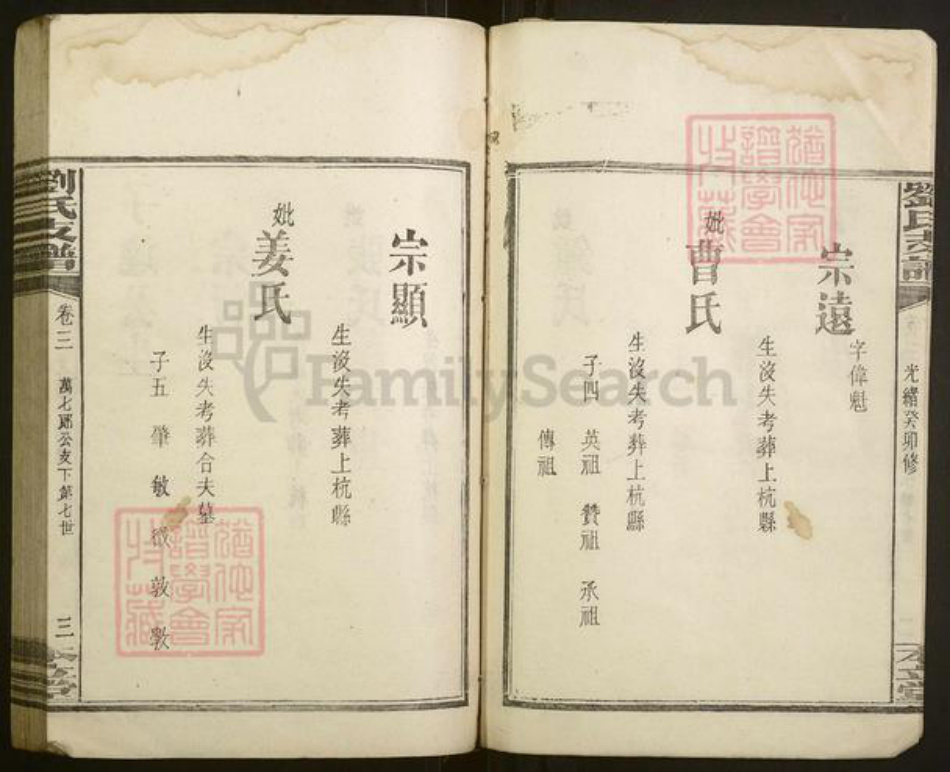 劉氏支譜
光緒癸卯修
本立堂
宗遠
字偉魁
生沒失考葬上杭縣
妣
曹氏
生沒失考葬上杭縣
子四 英祖 贊祖 承祖
傳祖
宗顯
生沒失考葬上杭縣
妣
姜氏
生沒失考葬合夫墓
子五 肇 敏 敬 敦
劉氏支譜
卷三
萬七郎公支下第七世
三
本立堂
FamilySearch